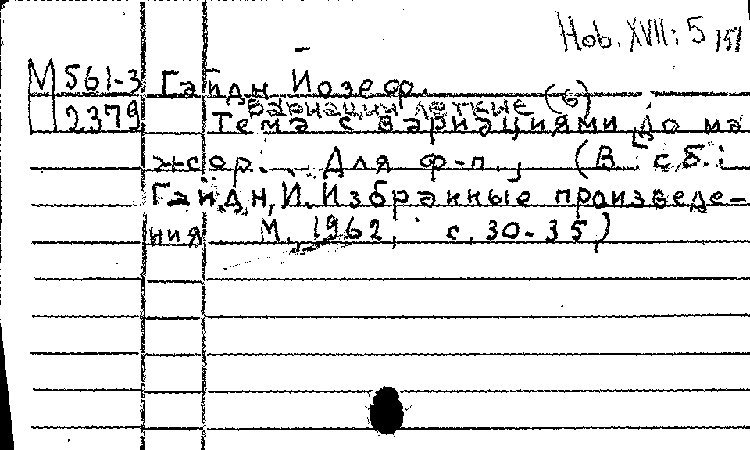 Hob. XVII: 5
М 561-3 Гайдн Йозеф.
Вариации легкие (6)
2379 Тема с вариациями до ма
жор. Для ф-п., (В сб.:
Гайдн, И. Избранные произведе-
ния М., 1962, с. 30-35)